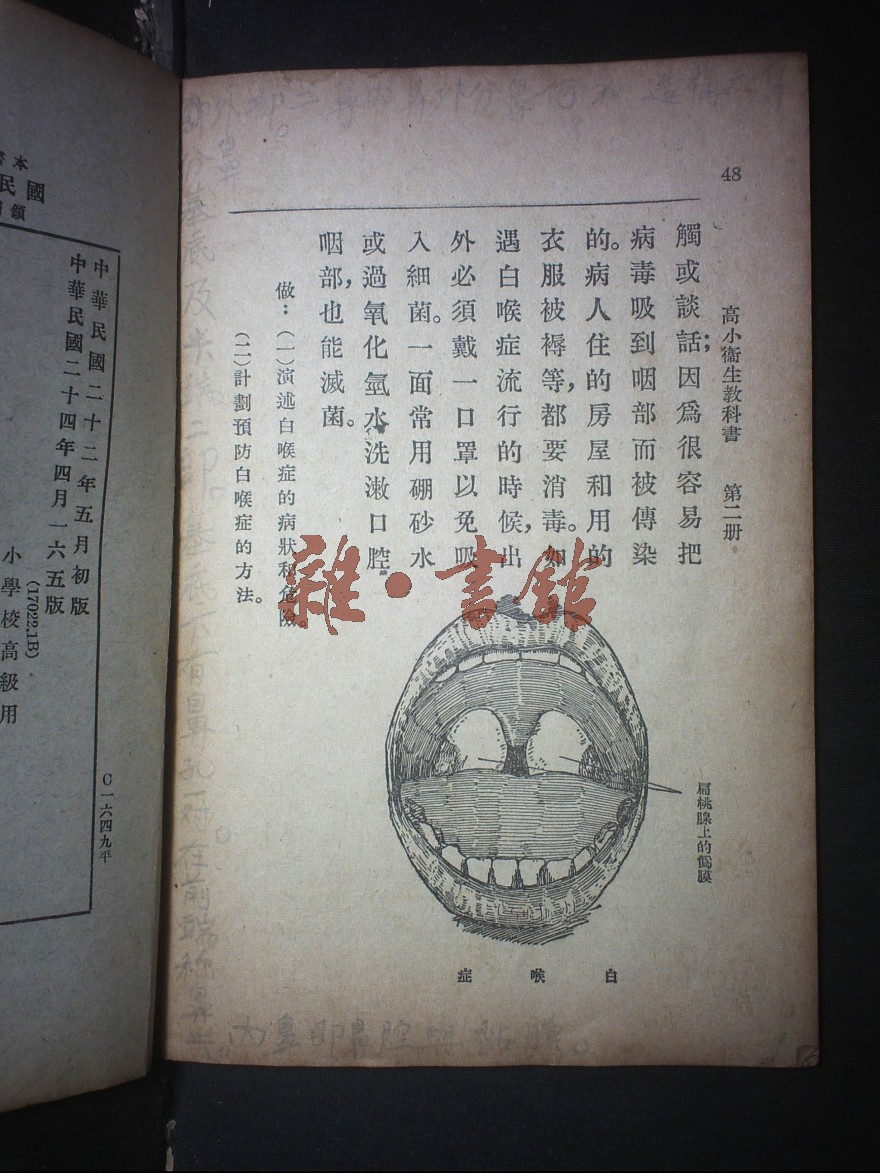 48
高小衞生教科書　第二册
觸或談話；因爲很容易把
病毒吸到咽部而被傳染
的。病人住的房屋和用的
衣服被褥等，都要消毒。如
遇白喉症流行的時候，出
外必須戴一口罩以免吸
入細菌。一面常用硼砂水
或過氧化氫水洗漱口腔
咽部，也能滅菌。
做：（一）演述白喉症的病狀和危險。
（二）計劃預防白喉症的方法。
扁桃腺上的僞膜
白喉症
雜·書館
外鼻
基底不有鼻孔一對。在前端称鼻尖。
內鼻即鼻腔與黏膜。
中華民國二十二年五月初版
中華民國二十四年四月一六五版
(17022.1B)
小學校高級用
C一六四九平